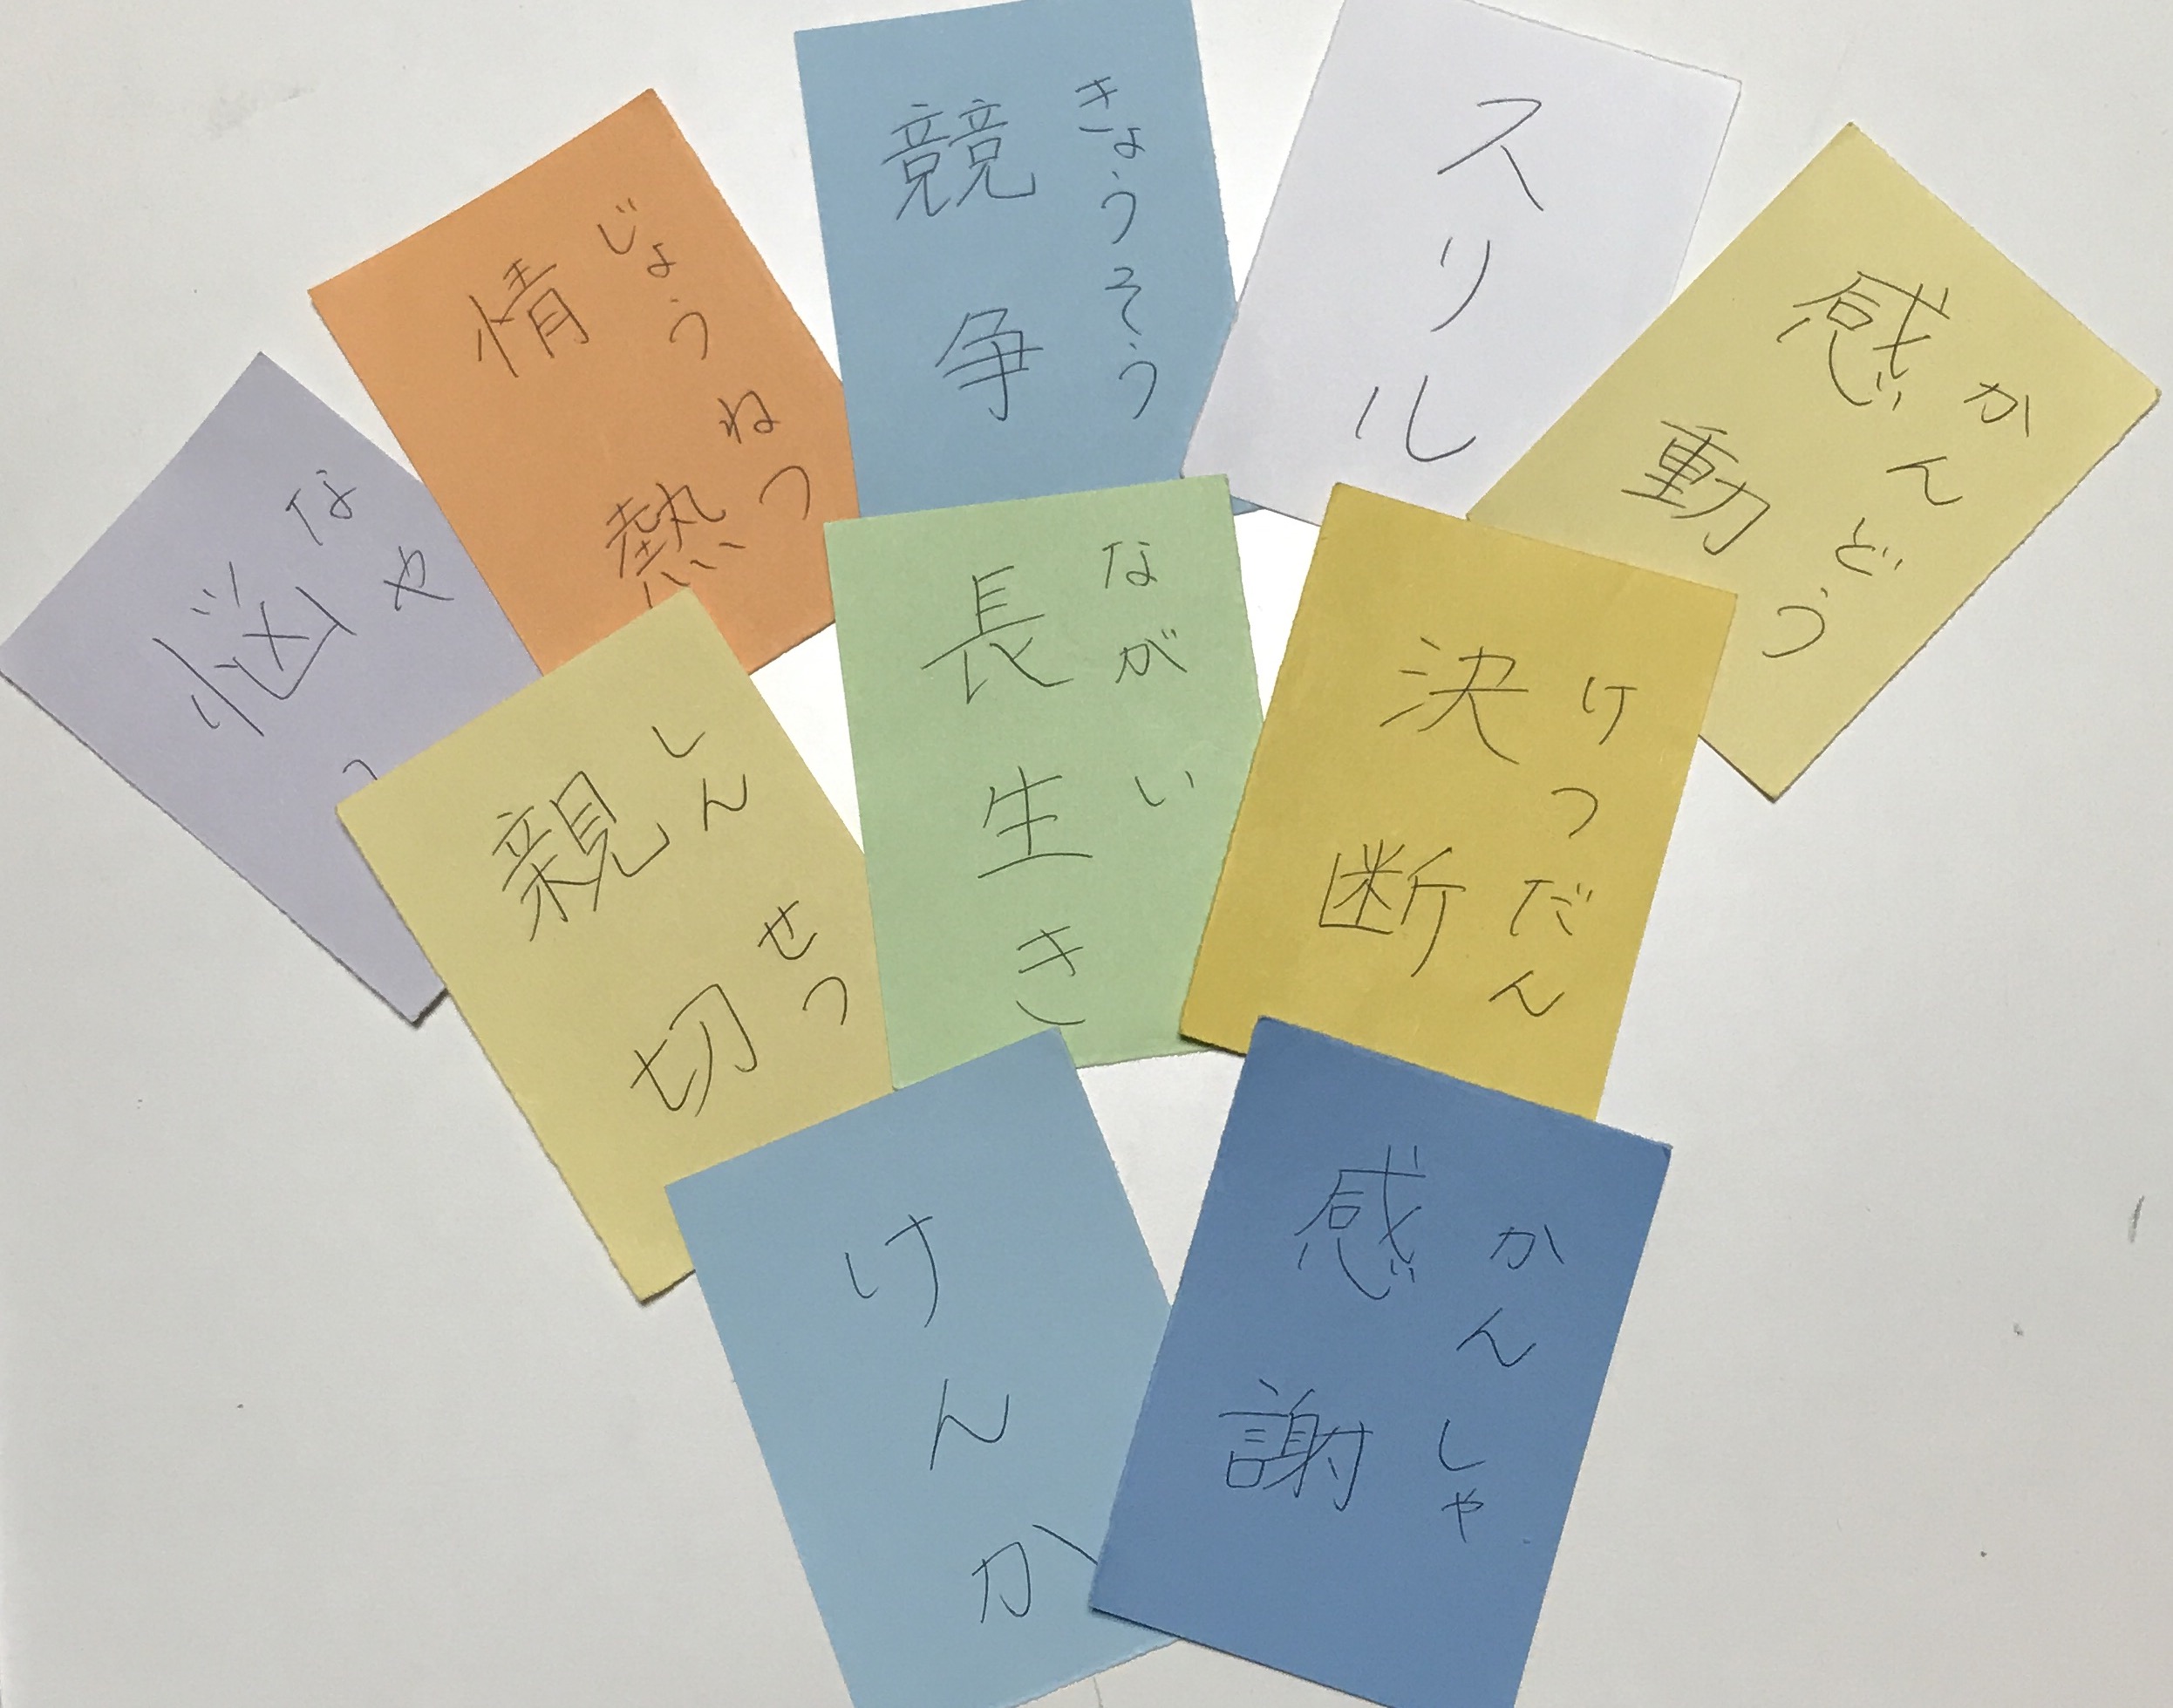 競争
きょうそう
スリル
情熱
じょうねつ
感動
かんどう
悩
なや
長生き
ながい
決断
けつだん
親切
しんせつ
けんか
感謝
かんしゃ